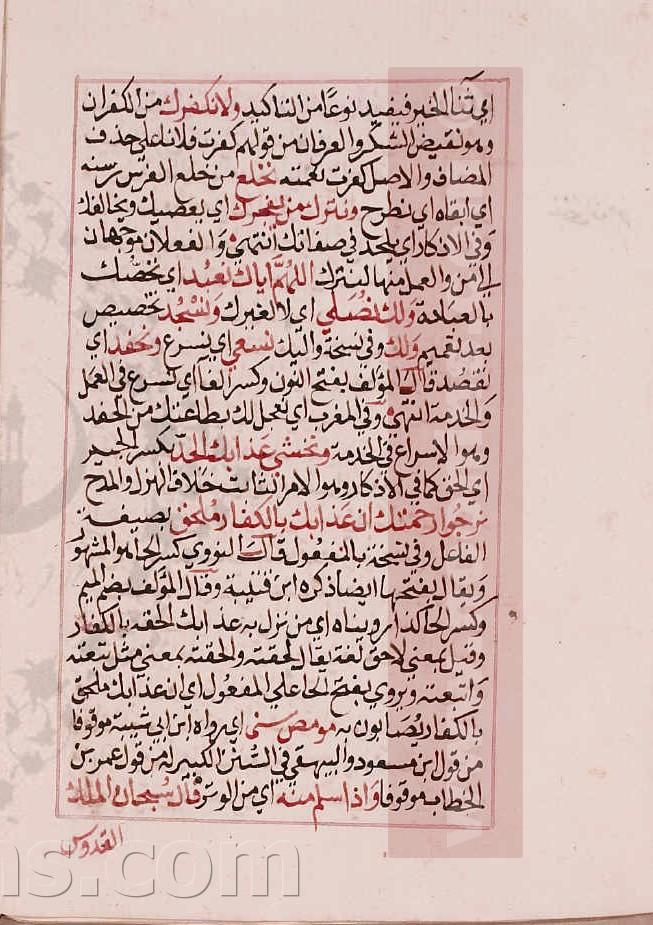 اي ثناء الخير فيفيد نوعا من التاكيد ولا نكفرك من الكفران
وهو نقيض الشكر والعرفان من قولهم كفرت فلانا على حذف
المضاف والاصل كفرت نعمته نخلع من خلع الفرس رسنه
اي القاه اي نطرح ونترك من يفجرك اي يعصيك ويخالفك
وفي الاذكار اي يلحد في صفاتك انتهى والفعلان موجهان
الى من والعمل منها لنترك اللهم اياك نعبد اي نخصك
بالعبادة ولك نصلي اي لا لغيرك ونسجد تخصيص
بعد تعميم ولك وفي نسخة واليك نسعى اي نسرع ونحفد اي
نقصد قال المؤلف بفتح النون وكسر الفا اي نسرع في العمل
والخدمة انتهى وفي المغرب اي نعمل لك بطاعتك من الحفد
وهو الاسراع في الخدمة ونخشى عذابك الجد بكسر الجيم
اي الحق كما في الاذكار وهو الامر الثابت خلاف الهزل والمدح
نرجو رحمتك ان عذابك بالكفار ملحق بصيغة
الفاعل وفي نسخة بالمفعول قال النووي كسر الحا هو المشهور
ويقال بفتحها ايضا ذكره ابن قتيبة وقال المؤلف بضم الميم
وكسر الحا كذا رويناه اي من نزل به عذابك الحقه بالكفار
وقيل بمعنى لاحق لغة يقال لحقته والحقته بمعنى مثل تبعته
واتبعته ويروى بفتح الحا على المفعول اي ان عذابك ملحق
بالكفار يصابون به مو مص سنى اي رواه ابن ابي شيبة موقوفا
من قول ابن مسعود والبيهقي في السنن الكبير له من قول عمر بن
الخطاب موقوفا واذا سلم منه اي من الوتر قال سبحان الملك
القدوس
ns.com